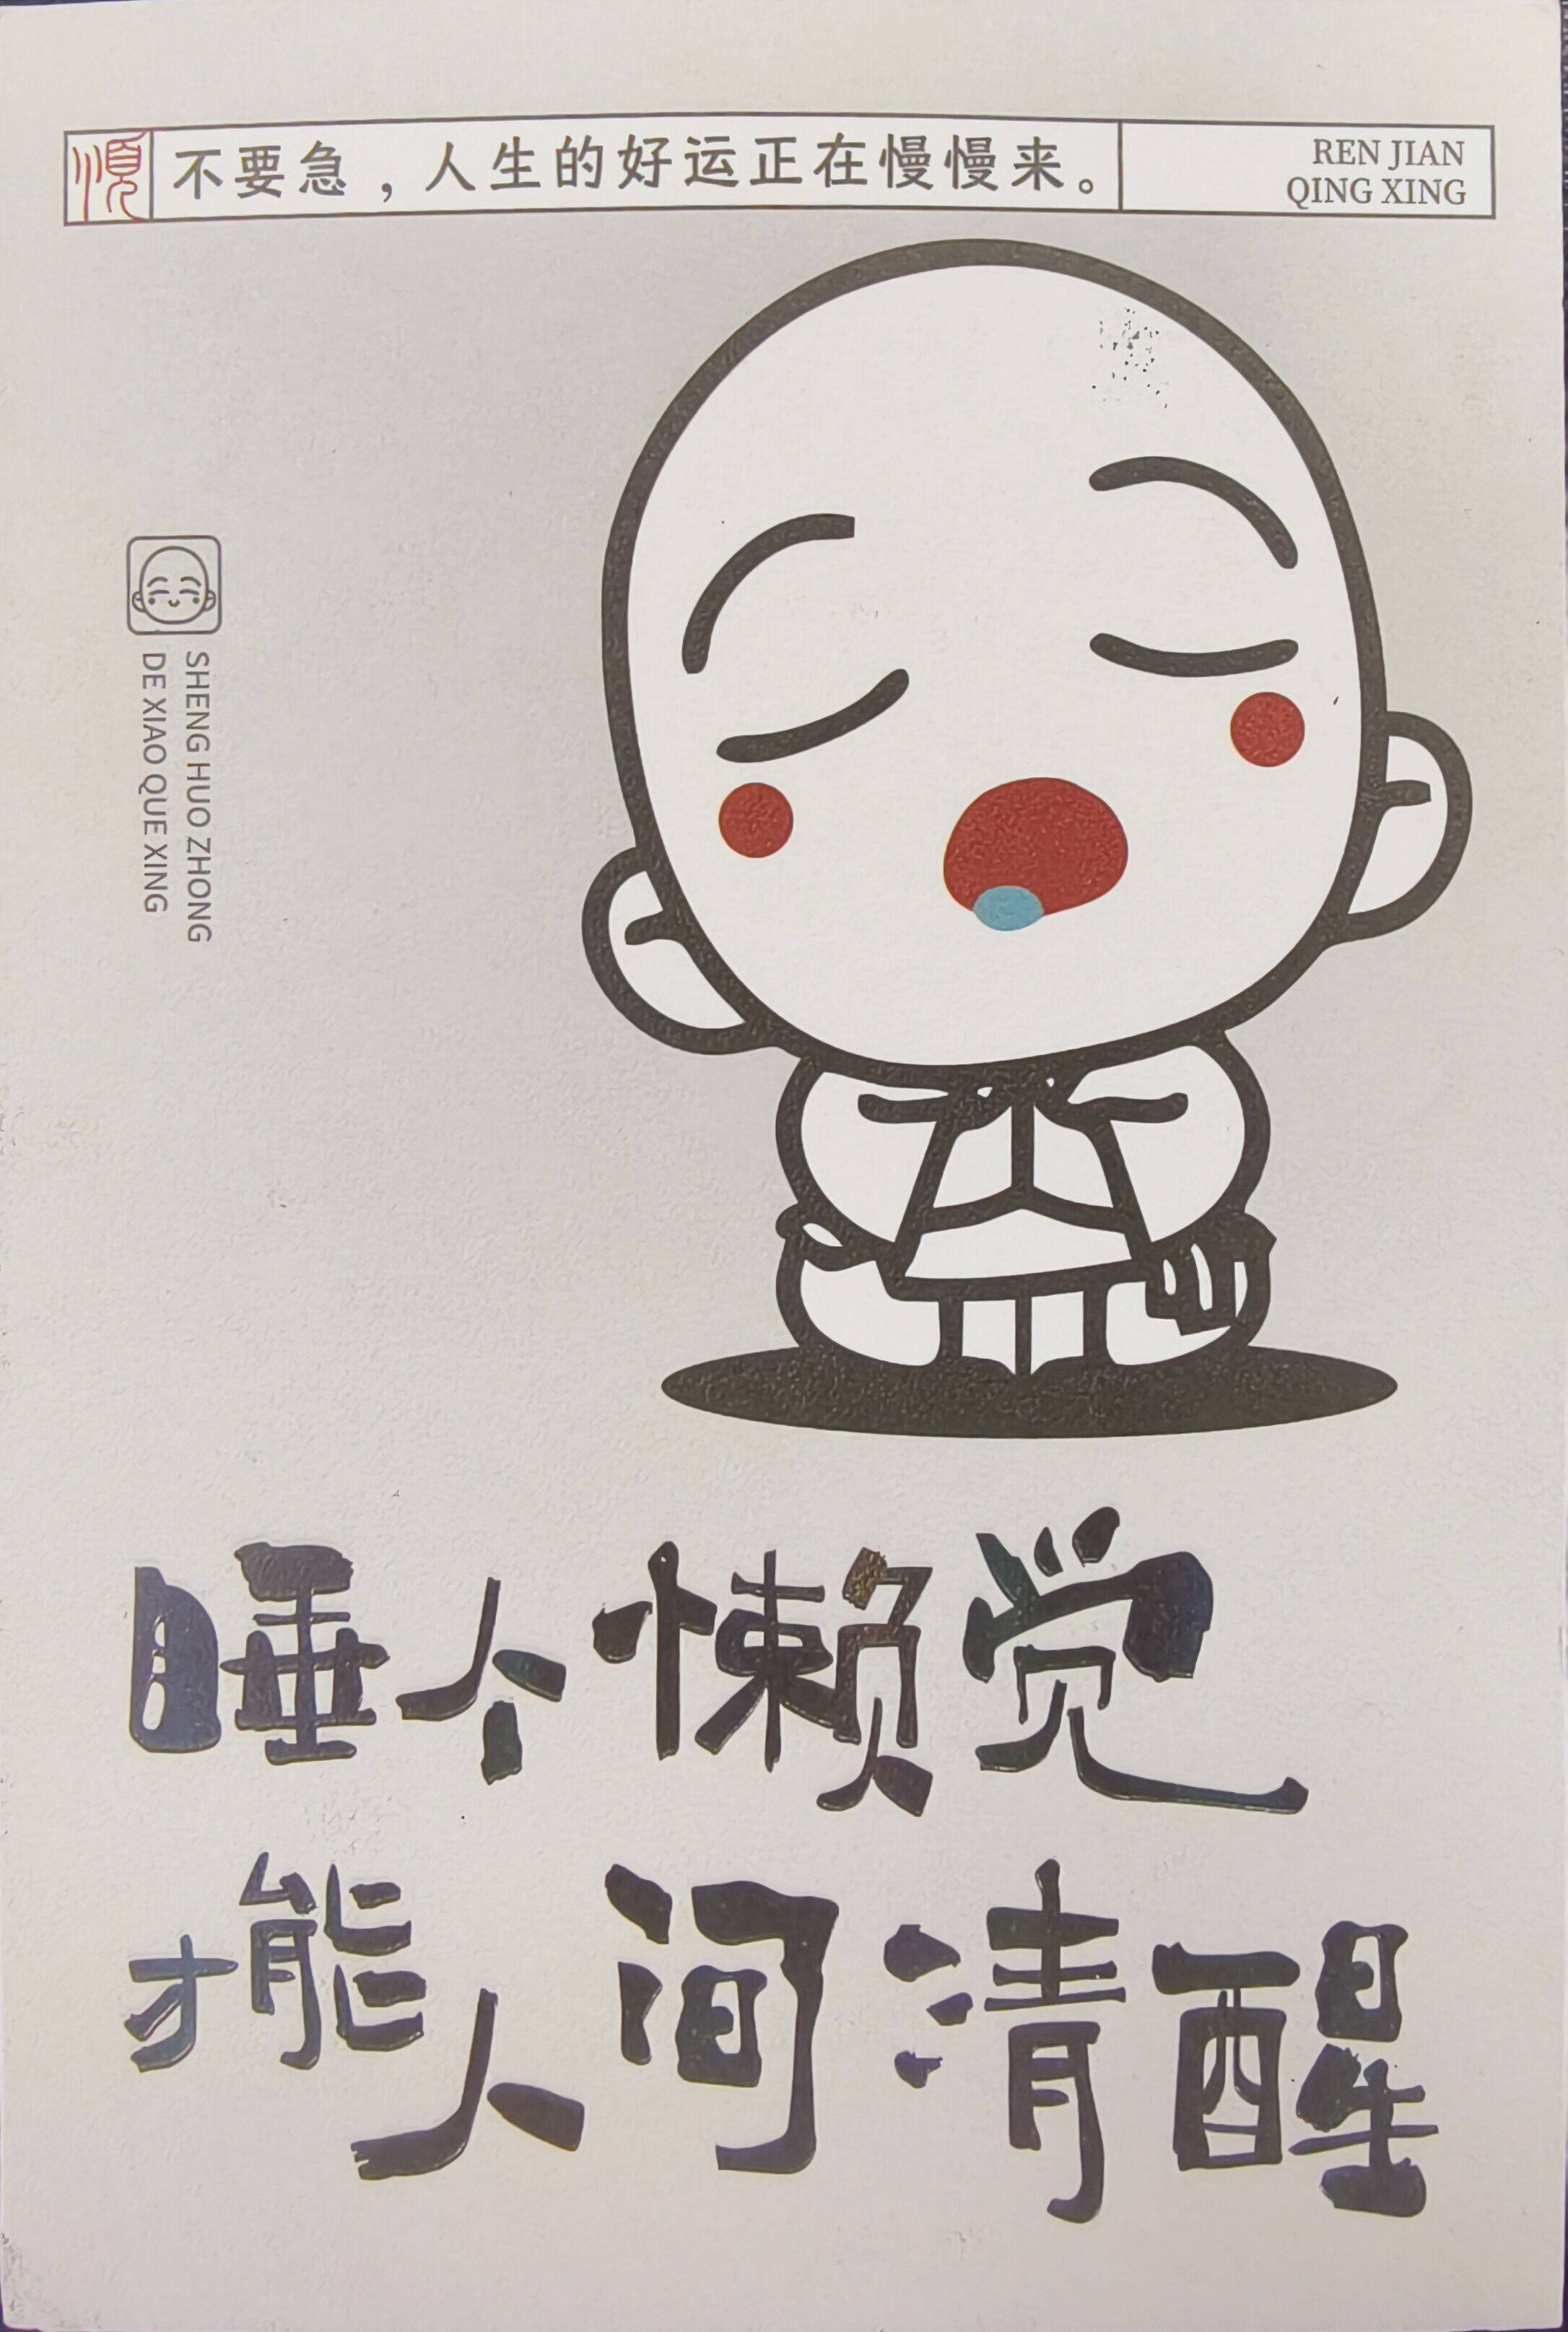 順
不要急，人生的好运正在慢慢来。
REN JIAN
QING XING
SHENG HUO ZHONG
DE XIAO QUE XING
睡个懒觉
才能人间清醒